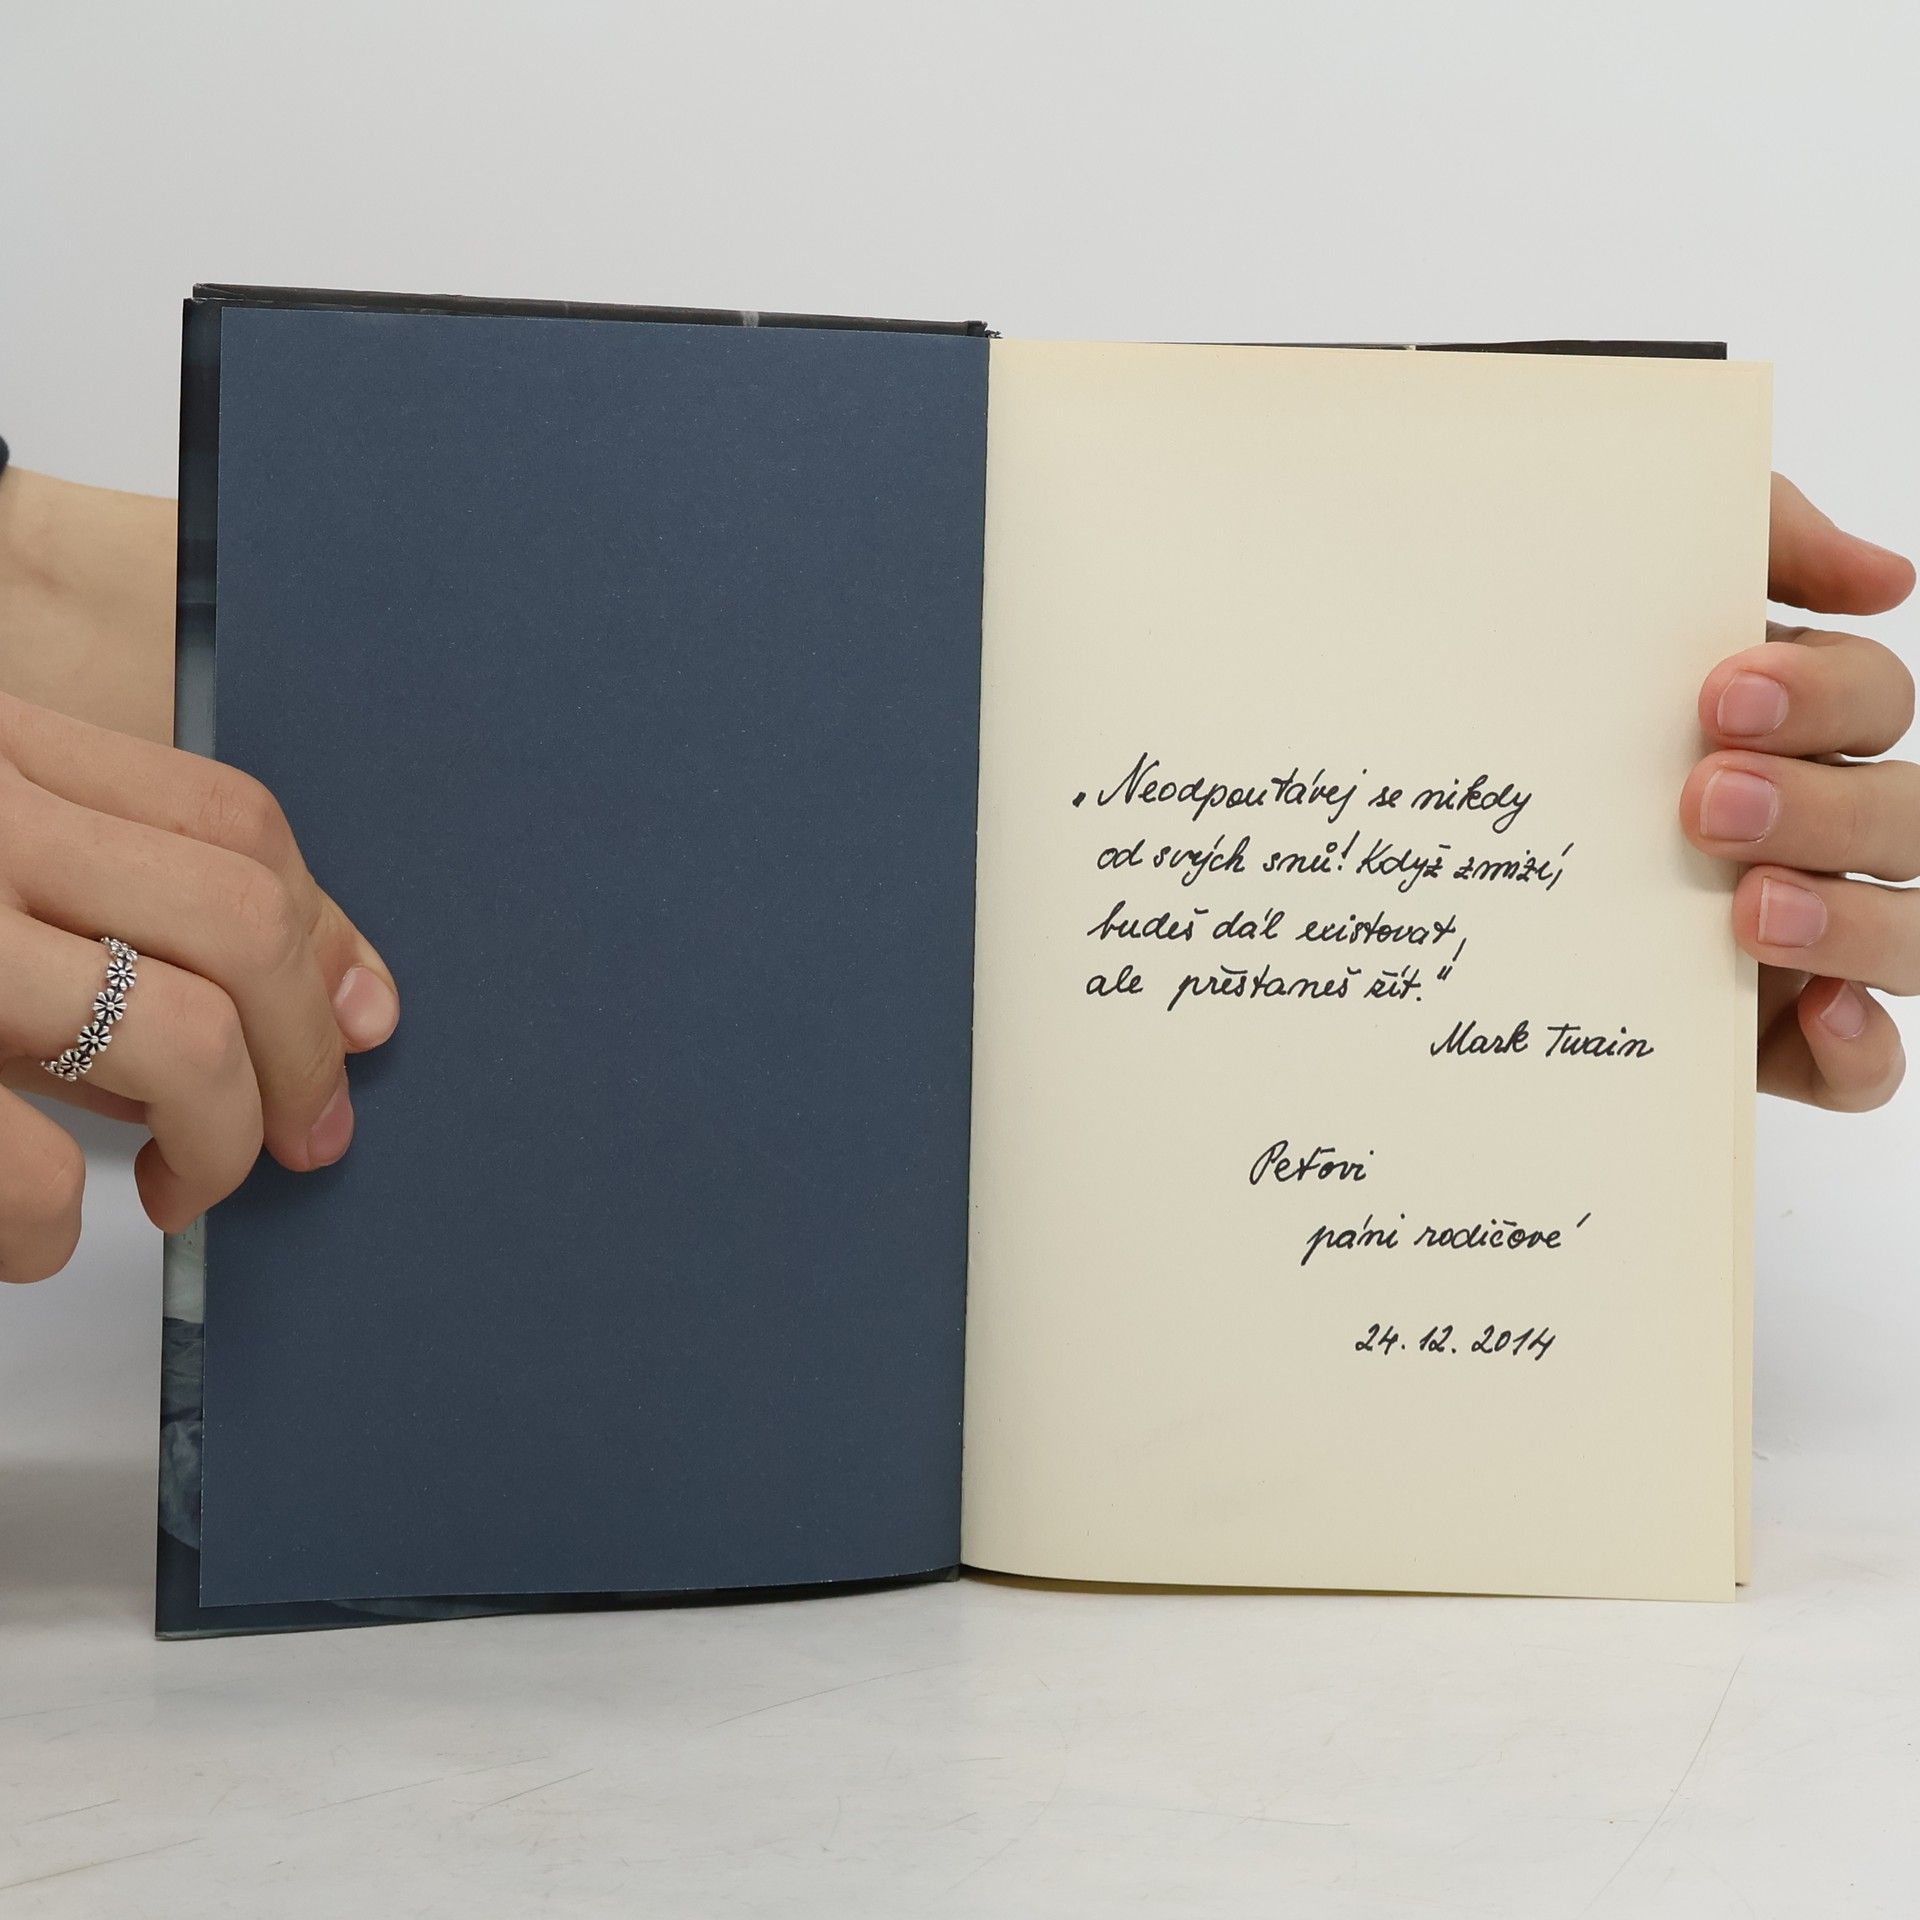 „Neodpoutávej se nikdy
od svých snů! Když zmizí,
budeš dál existovat,
ale přestaneš žít."
Mark Twain
Peťovi
páni rodičové
24. 12. 2014